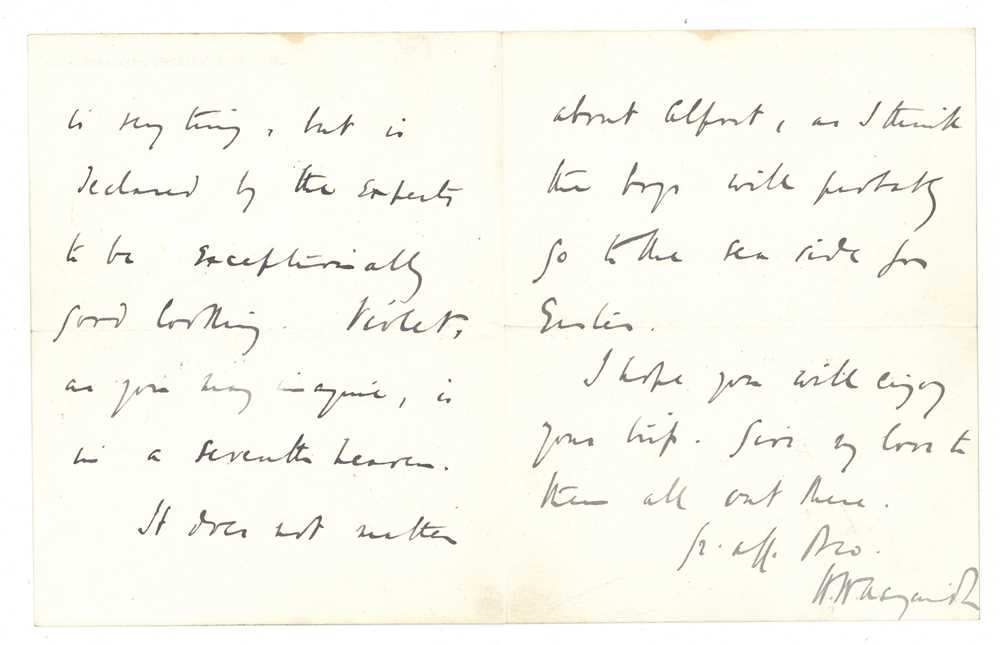 is anything, but is
declared by the experts
to be exceptionally
good looking. Violet,
as you may imagine, is
in a seventh heaven.
It does not matter
about Alfort, as I think
the boys will probably
go to the sea side for
Easter.
I hope you will enjoy
your trip. Give my love to
them all out there.
Yr. aff. Bro.
H. H. Asquith